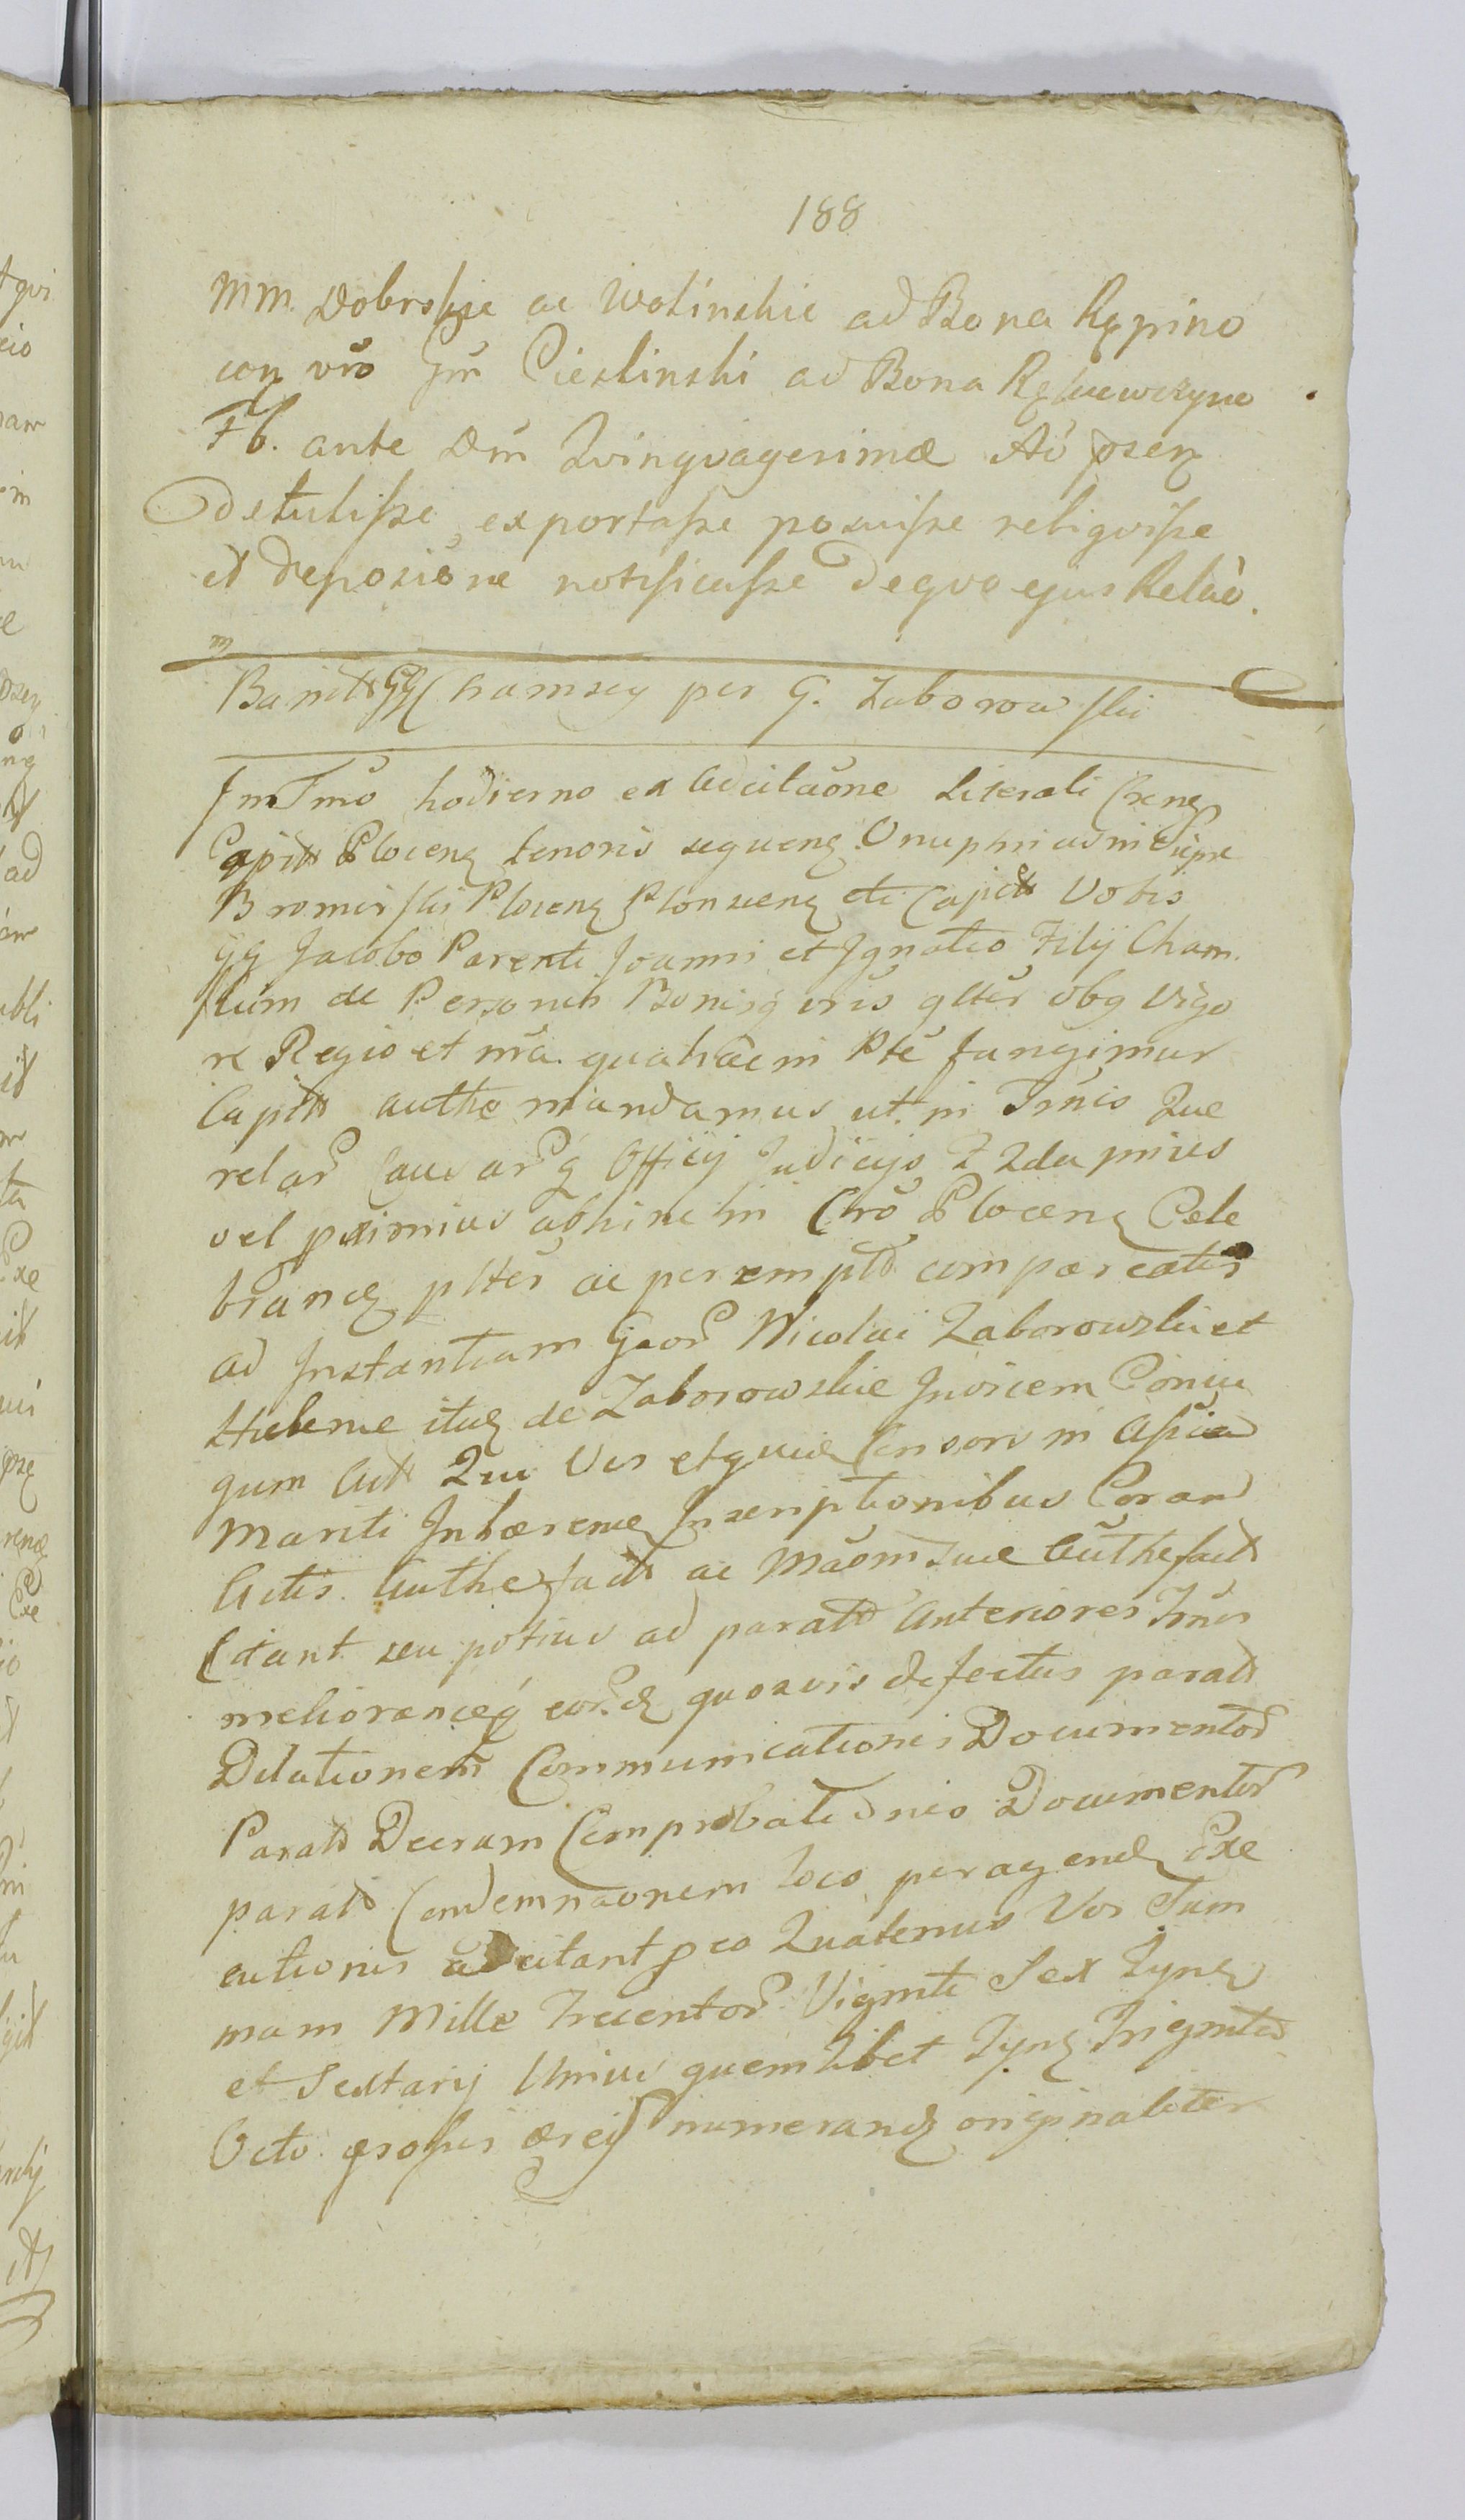 188
MM. Dobrskie ac Wolinskie ad Bona Rępino
con vro Gnr Cieslinski ad Bona
Fb. ante Dm Qvinqvagesimæ An psen
detulisse exportasse posuisse reliqvisse
et depositione notificasse de qvo ejus Relao.
Banit GG Chamscy per G. Zaborowski
In Tmo hodierno ex Adcitaone Literali Cren
Capit Plocen tenoris seqven Onuphri
Bromirski Plocen Plonscen etc Capit Vobis
GG Jacobo Parenti Joanni et Ignatio Filij Cham
skim de Personis Bonisq vris gltter obq Vigo
re Regio et nra qua hac in Pte fungimur
Capit autthe mandamus ut in Trnis Que
relar Caus arq Officij Judicijs
vel primius abhinc in Cro Plocen Cele
brand pltter ac perempt compareatis
ad Instantiam Gnor Nicolai Zaborowski et
Helene de Zaborowskie Invicem Conju
gum Act Qui Vos Consors in
Mariti Inhæren Inscriptionibus Coram
Actis Authe fact ac Maom suæ Authe fact
Citant seu potius ad parat Anteriores Trnis
meliorandeq eord quosvis defectus parat
Dilationem Communicationis Documentor
Parat Decisam Comprobationis Documentor
parat Condemnaonem loco peragend Exe
cutionis adcitant pro eo Quatenus Vos Sum
mam Mille Trecentor Viginti Sex Tynf
et Sextarij Unius quemlibet Tynf Triginta
Octo grossis æreis numerand originaliter